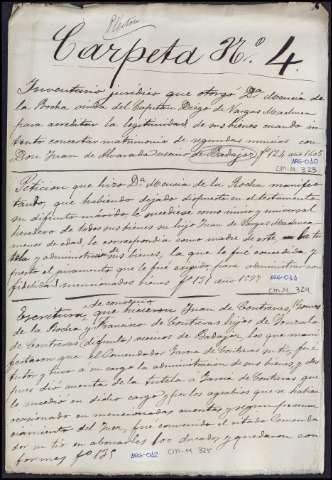 Carpeta N.º 4.
Inventario jurídico que otorgó Dª Mencia de
la Rocha viuda del Capitan Diego de Vargas Machuca
para acreditar la legitimidad de sus bienes cuando in-
tentó concertar matrimonio de segundas nuncias con
Don Juan de Alvarado vecino de Badajoz fº 128 año 1595
ARG-010
CM-M 323
Peticion que hizo Dª Mencia de la Rocha manifes-
tando, que habiendo dejado dispuesto en el testamento
su difunto marido, le sucediese como único y universal
heredero de todos sus bienes su hijo Juan de Vargas Machuca
menor de edad, le correspondía como madre de este, la tu-
tela y administracion de sus bienes, la que le fué concedida y
prestó el juramento que le fué exigido para administrar con
fidelidad mencionados bienes fº 131 año 1597
ARG-011
CM-M 324
Escritura de convenio que hicieron Juan de Contreras, Leonor
de la Rocha y Francisco de Contreras hijos de Gonzalo
de Contreras (difunto) vecinos de Badajoz, los que mani-
festaron que el Comendador Garcia de Contreras su tio, fué
tutor y tuvo a su cargo la administracion de sus bienes y des-
pues dió cuenta de la tutela a Garcia de Contreras que
le sucedió en dicho cargo y por los agravios que se habian
ocasionado en mencionadas cuentas y segun pronun-
ciamiento del Juez, fué convenido el citado Comenda-
dor su tio en abonarles 100 ducados y quedaron con-
formes fº 135
ARG-012
CM-M 325